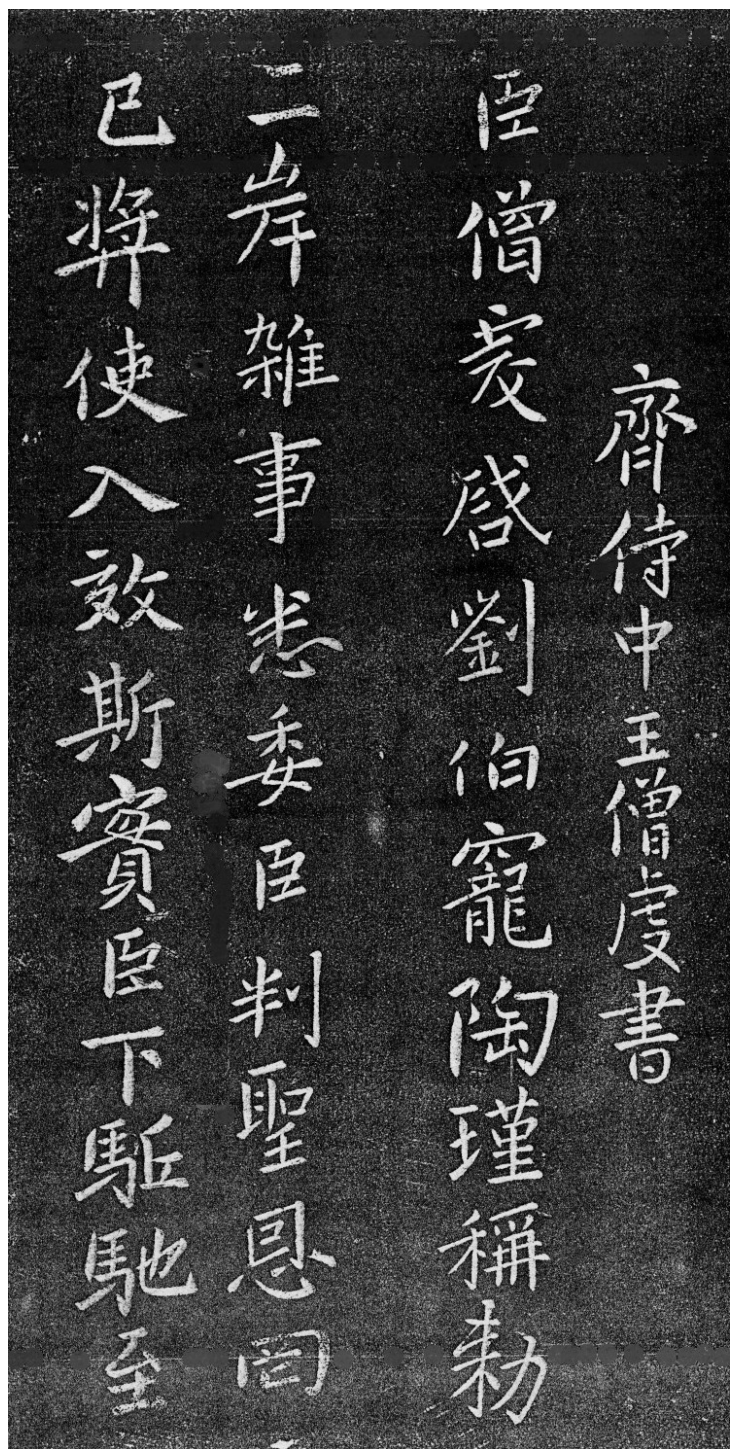 齊侍中王僧虔書
臣僧虔啓劉伯寵陶瑾稱勑
二岸雜事悉委臣判聖恩罔
已弉使入效斯實臣下駈馳至